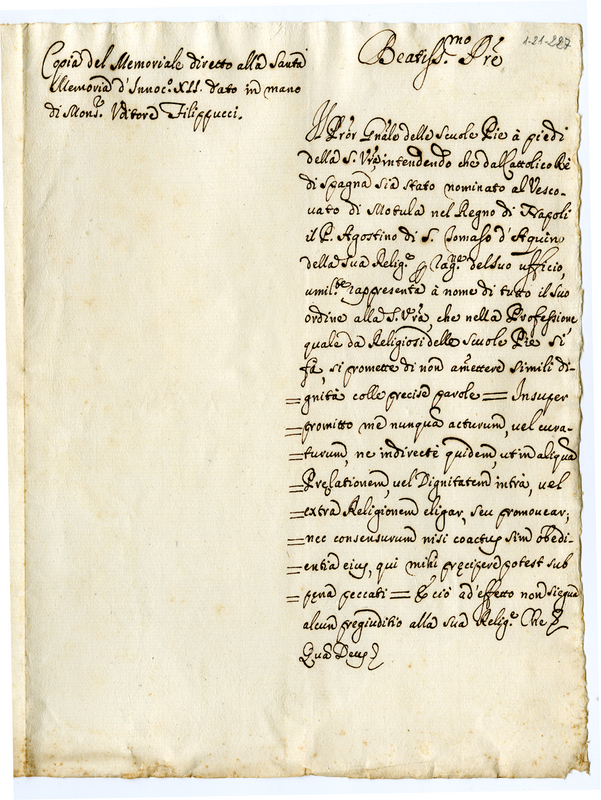 Copia del Memoriale diretto alla Santa
Memoria d'Innoc.o XII. dato in mano
di Mons.r Uditore Filippucci.
Beatiss.mo Pre
1-21-227
Il Pror Gnale delle Scuole Pie à piedi
della S. Vra, intendendo che dal Cattolico Rè
di Spagna sia stato nominato al Vesco-
vato di Motula nel Regno di Napoli
il P. Agostino di S. Tomaso d'Aquino
della sua Relig.e p rag.e del suo uffitio,
umil.te rappresenta à nome di tutto il suo
ordine alla S. Vra, che nella Professione
quale da Religiosi delle Scuole Pie si
fà, si promette di non amettere simili di-
gnità colle precise parole = Insuper
= promitto me nunquã acturum, vel cura-
= turum, ne indirectè quidem, ut in aliquã
= Prelationem, vel Dignitatem intrà, vel
= extra Religionem eligar, seu promovear;
= nec consensurum nisi coactus sim obedi-
= entia eius, qui mihi precipere potest sub
= pena peccati = E ciò ad effetto non siegua
alcun pregiuditio alla sua Relig.e Che
Quã Deus